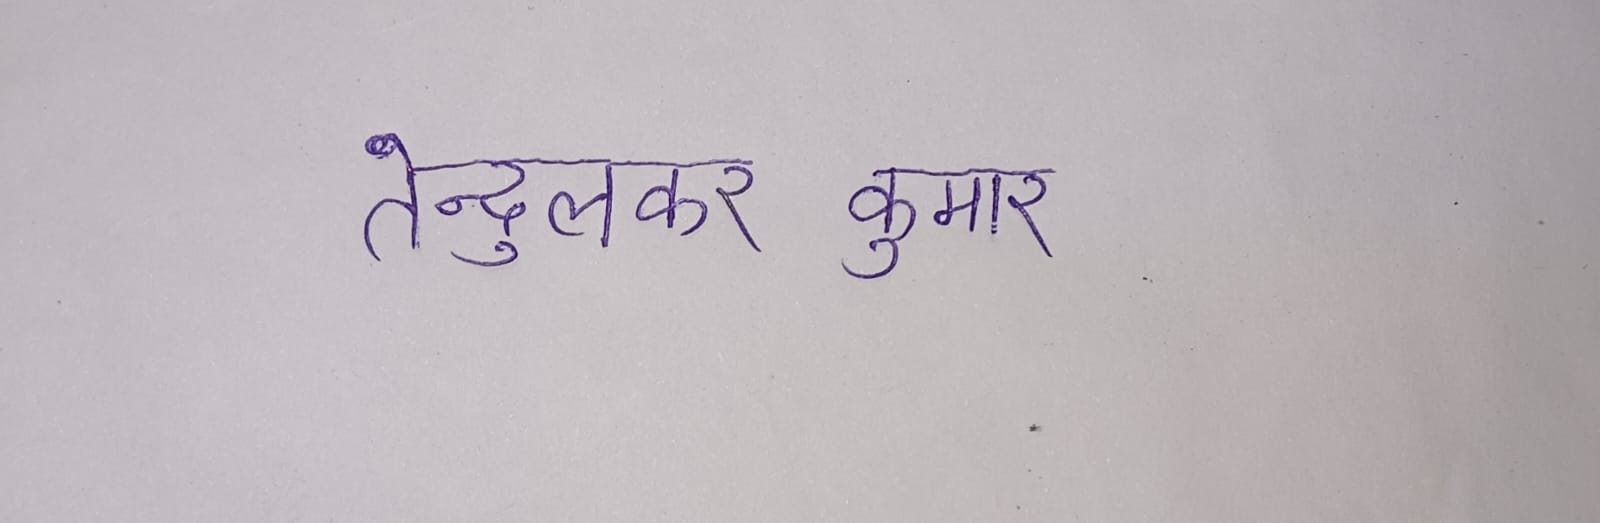 तेन्दुलकर कुमार